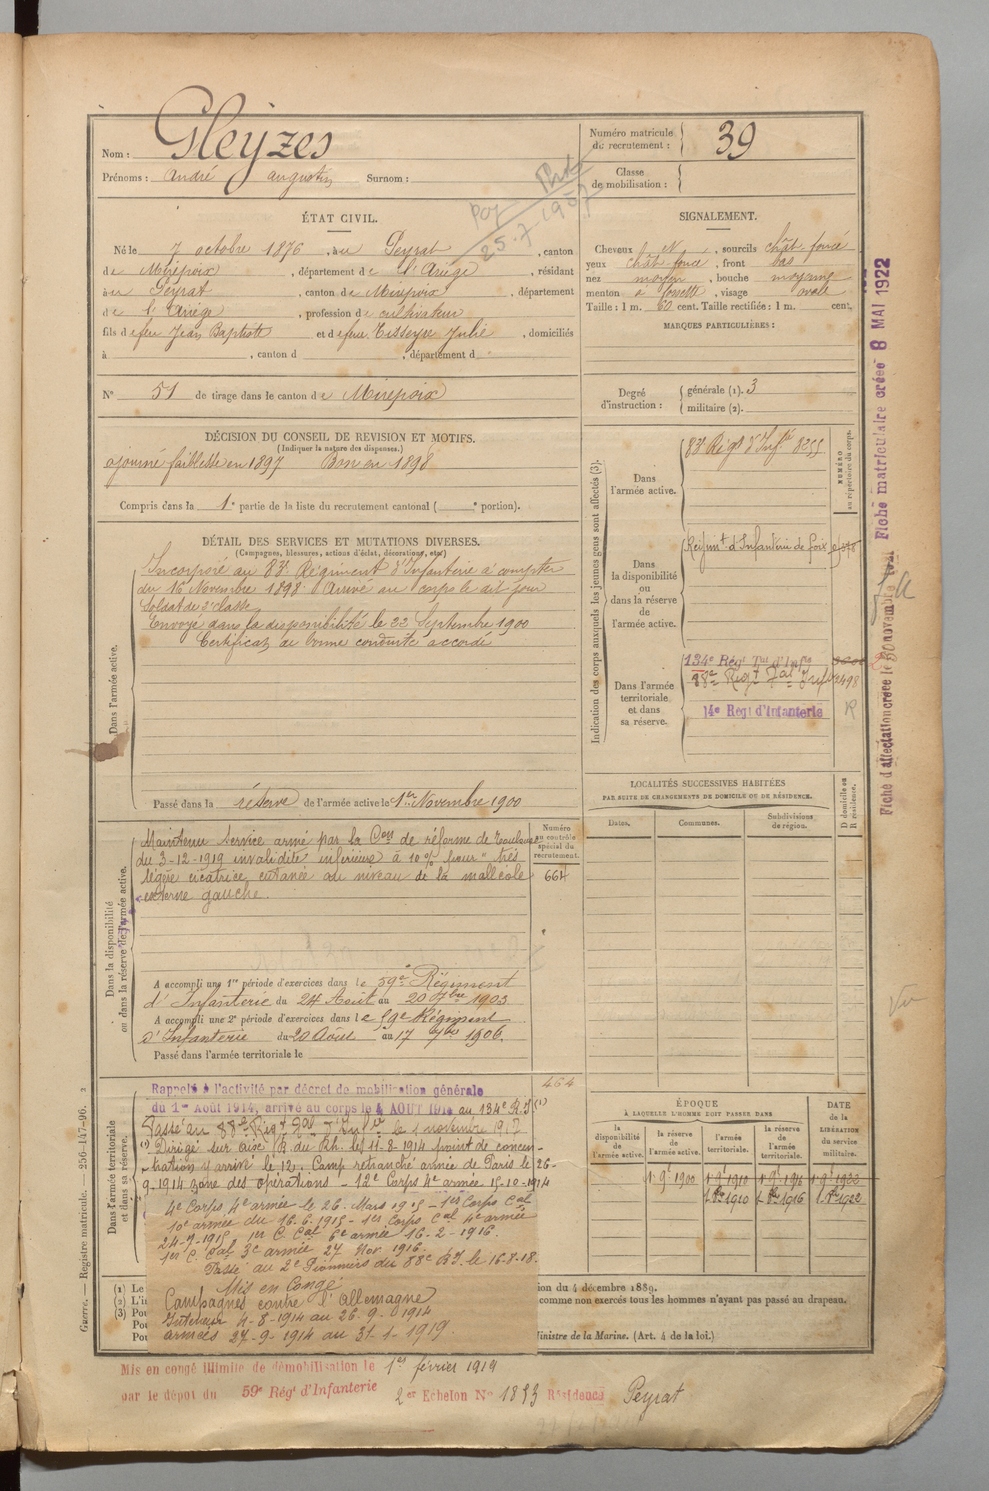 Nom : Gleyzes
Prénoms : André Augustin Surnom :
Numéro matricule du recrutement : 39
Classe de mobilisation :
ÉTAT CIVIL.
Né le 7 octobre 1876, à Peyrat, canton
de Mirepoix, département de l'Ariège, résidant
à Peyrat, canton de Mirepoix, département
de l'Ariège, profession de cultivateur
fils de feu Jean Baptiste et de feue Tisseyre Julie, domiciliés
à , canton d , département d
N° 51 de tirage dans le canton de Mirepoix
SIGNALEMENT.
Cheveux N, sourcils chât. foncé
yeux chât. foncé, front bas
nez moyen, bouche moyenne
menton à fossette, visage ovale
Taille : 1 m. 60 cent. Taille rectifiée : 1 m. cent.
MARQUES PARTICULIÈRES :
Degré d'instruction : générale (1). 3
militaire (2).
DÉCISION DU CONSEIL DE REVISION ET MOTIFS.
(Indiquer la nature des dispenses.)
ajourné faiblesse en 1897 Bon en 1898
Compris dans la 1e partie de la liste du recrutement cantonal ( e portion).
DÉTAIL DES SERVICES ET MUTATIONS DIVERSES.
(Campagnes, blessures, actions d'éclat, décorations, etc.)
Dans l'armée active.
Incorporé au 83e Régiment d'Infanterie à compter
du 16 Novembre 1898. Arrivé au corps le dit jour
Soldat de 2e classe
Envoyé dans la disponibilité le 22 Septembre 1900
Certificat de bonne conduite accordé
Passé dans la réserve de l'armée active le 1er Novembre 1900
Indication des corps auxquels les jeunes gens sont affectés (3).
NUMÉRO au répertoire du corps.
Dans l'armée active.
83e Régt d'Infrie 8255
Dans la disponibilité ou dans la réserve de l'armée active.
Régimt d'Infanterie de Foix
Dans l'armée territoriale et dans sa réserve.
134e Régt Tal d'Infie
88e Régt Tal Infie
14e Régt d'Infanterie
LOCALITÉS SUCCESSIVES HABITÉES
PAR SUITE DE CHANGEMENTS DE DOMICILE OU DE RÉSIDENCE.
Dates. Communes. Subdivisions de région. D domicile ou R résidence.
Dans la disponibilité ou dans la réserve de l'armée active.
Numéro au contrôle spécial du recrutement.
664
Maintenu service armé par la Con de réforme de Toulouse
du 3-12-1919 invalidité inférieure à 10% pour "très
légère cicatrice cutanée au niveau de la malléole
externe gauche.
A accompli une 1re période d'exercices dans le 59e Régiment
d'Infanterie du 24 Août au 20 7bre 1903
A accompli une 2e période d'exercices dans le 59e Régiment
d'Infanterie du 20 Août au 17 7bre 1906.
Passé dans l'armée territoriale le
464
Dans l'armée territoriale et dans sa réserve.
Rappelé à l'activité par décret de mobilisation générale
du 1er Août 1914, arrivé au corps le 4 AOUT 1914 au 134e R.I (1)
Passé au 88e Régt Tal d'Infie le 1 novembre 191
(1) Dirigé sur Aise B. du Rh. le 11-8-1914 point de concen-
-tration y arrivé le 12. Camp retranché armée de Paris le 26-
9-1914 zone des opérations - 12e Corps 4e armée 15-10-1914
4e Corps 4e armée le 26 Mars 1915 - 1er Corps Cal
10e armée du 16.6.1915 - 1er Corps Cal 4e armée
24-7-1915 1er C. Cal 6e armée 16-2-1916.
1er C. Cal 3e armée 27 Nov. 1916.
Passé au 2e Pionniers du 88e R.I. le 16-8-18.
Mis en Congé.
Campagnes contre l'Allemagne
Intérieur 4-8-1914 au 26-9-1914
armées 27-9-1914 au 31-1-1919.
ÉPOQUE
À LAQUELLE L'HOMME DOIT PASSER DANS
la disponibilité de l'armée active. la réserve de l'armée active. l'armée territoriale. la réserve de l'armée territoriale.
DATE de la LIBÉRATION du service militaire.
1er 9e 1900 1er 9e 1910 1er 9e 1916 1er 9e 1922
1 8bre 1910 1 8bre 1916 1 8bre 1922
(1) Le
(2) L'i
(3) Pou
Pou
Pou
ion du 4 décembre 1889.
comme non exercés tous les hommes n'ayant pas passé au drapeau.
Ministre de la Marine. (Art. 4 de la loi.)
Mis en congé illimité de démobilisation le 1er février 1919
par le dépôt du 59e Régt d'Infanterie 2er Echelon N° 1893 Résidence Peyrat
Guerre. — Registre matricule. — 256-147-96.
Fiche matriculaire créée 8 MAI 1922
Fiche d'affectation créée le 30 novembre
Vu